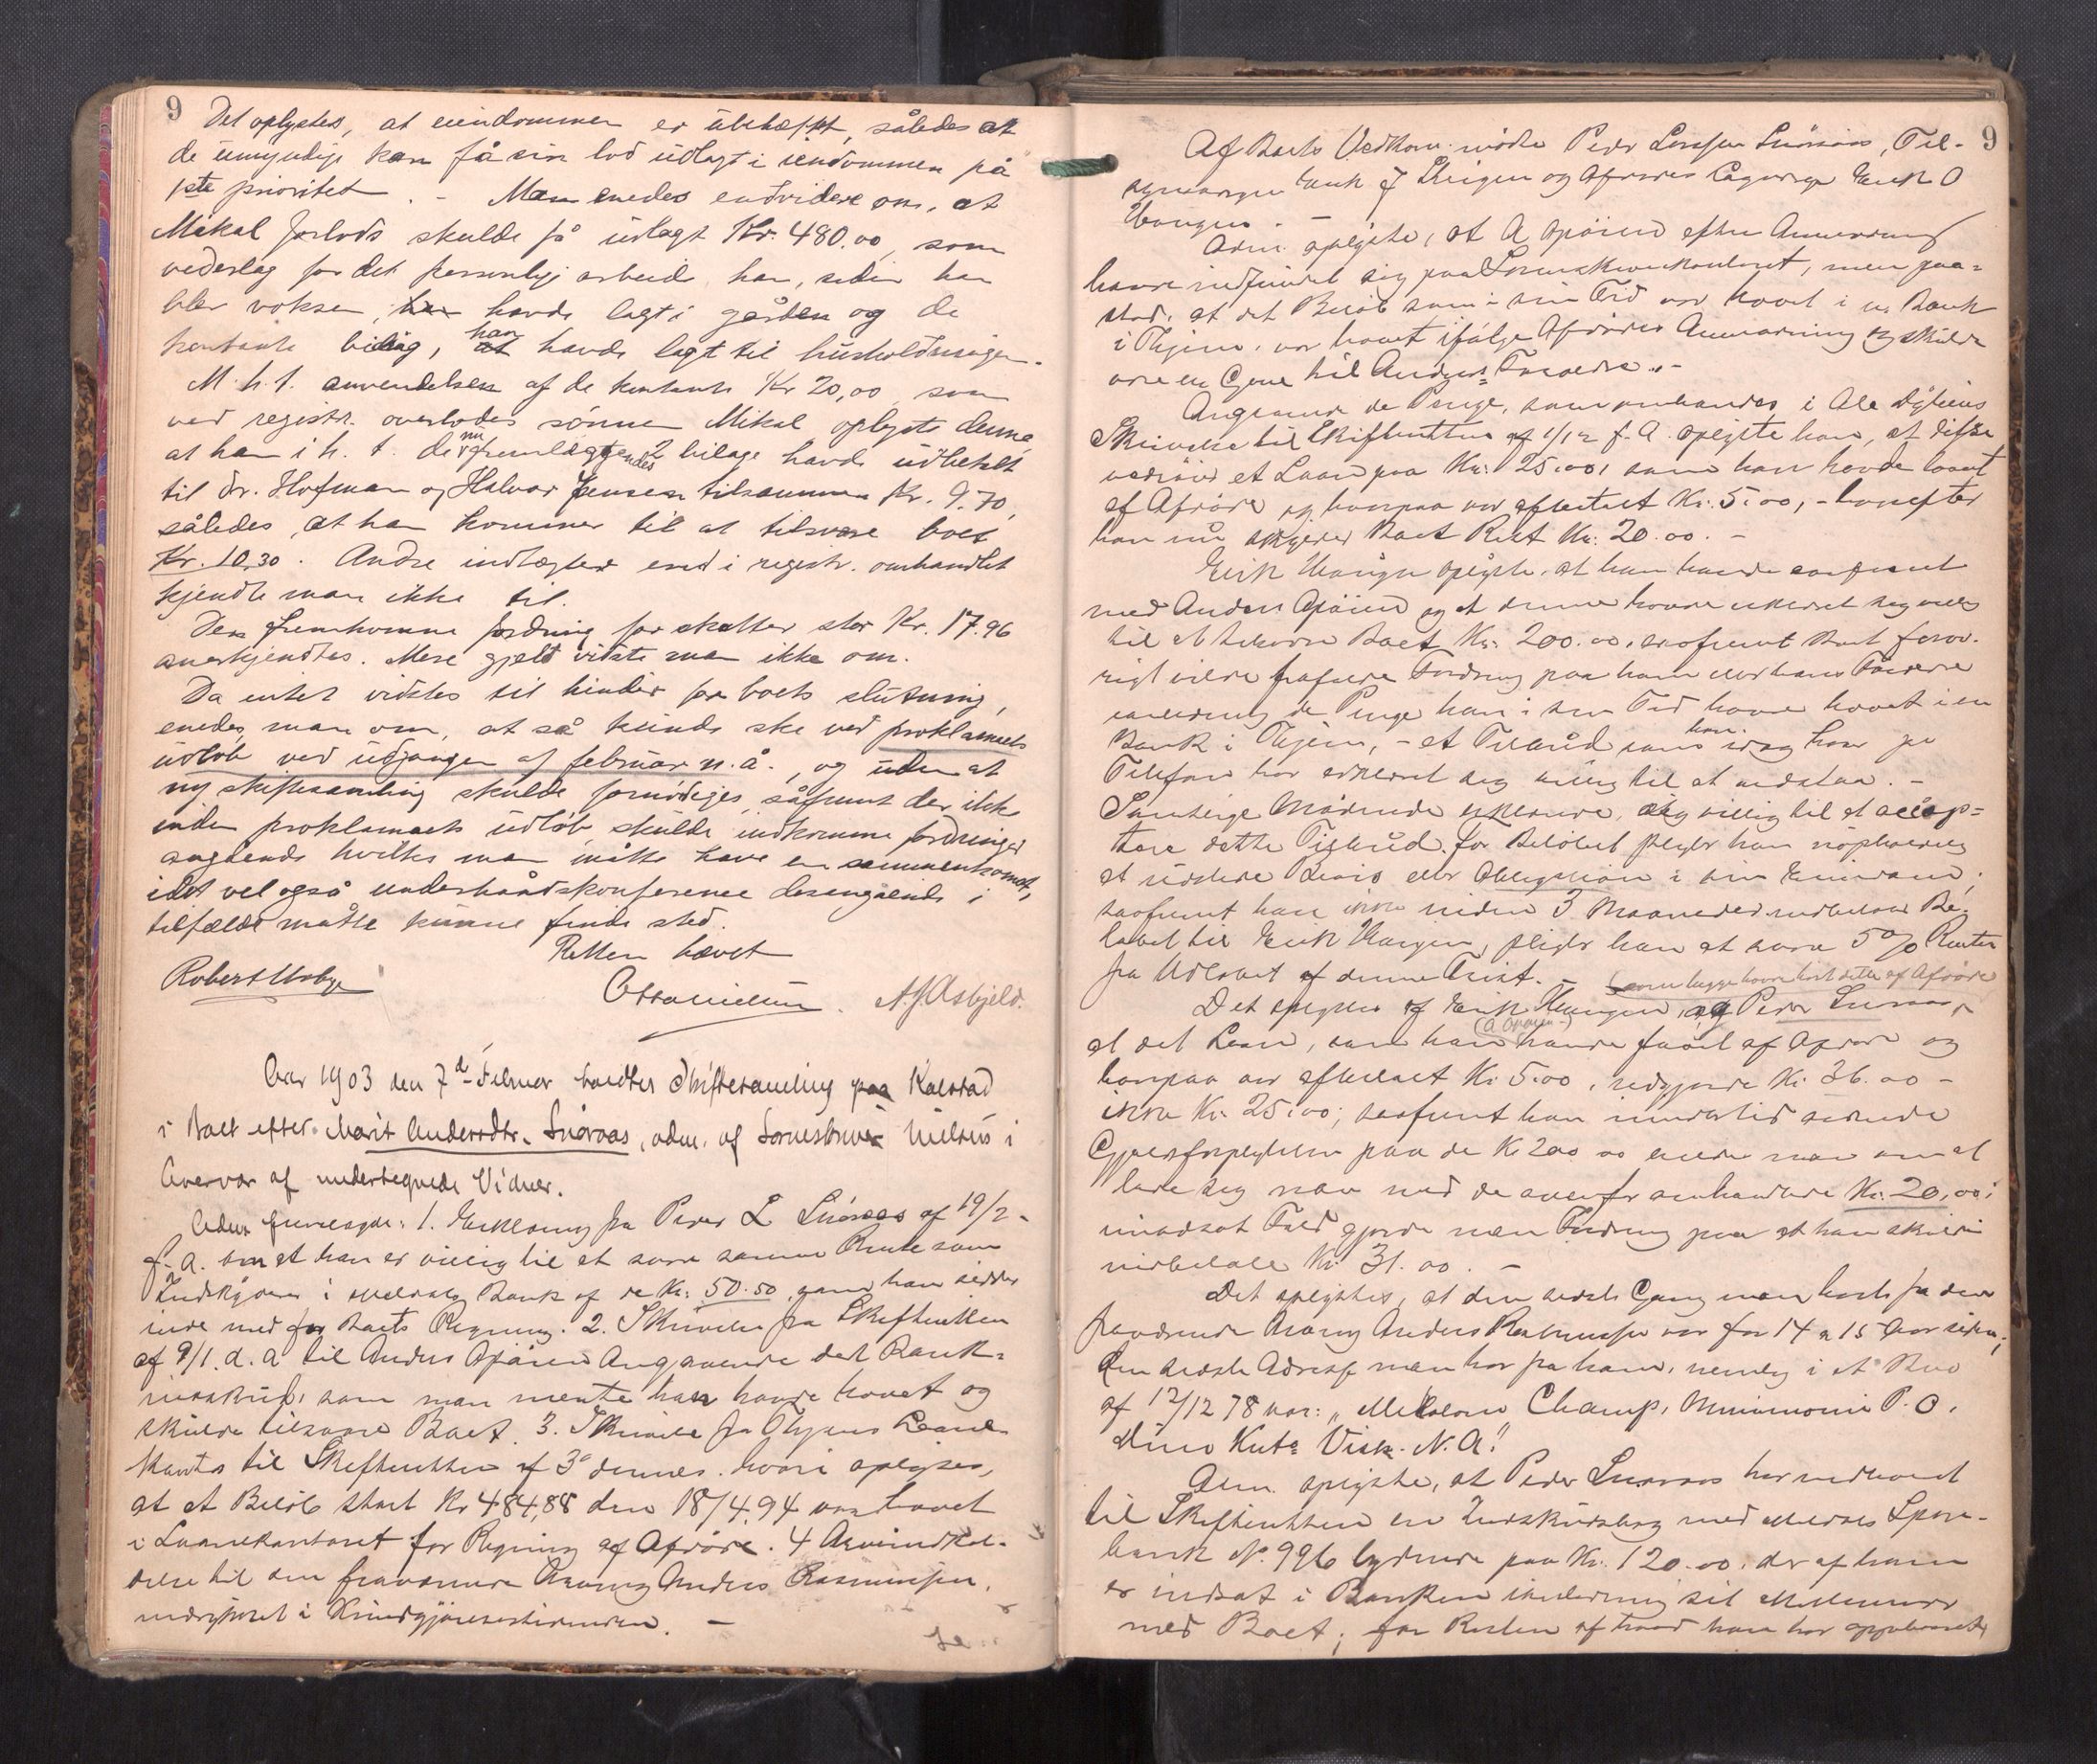 9
Det oplystes, at eiendommen er ubehæftet, således at
de umyndige kan få sin lod udlagt i eiendommen på
1ste prioritet. - Man enedes endvidere om, at
Mikal forlods skulde få udlagt Kr. 480.00, som
vederlag for det personlige arbeide han, siden han
blev voksen, havde lagt i gården og de
kontante bidrag, han havde lagt til husholdningen.
M. h. t. anvendelsen af de kontante Kr 20,00, som
ved registr. overlodes sønnen Mikal oplyste denne
at han i h. t. de nu fremlagte 2 bilage havde udbetalt
til dr. Hofman og Halvor Jensen tilsammen Kr. 9.70,
således at han kommer til at tilsvare boet
Kr. 10,30. Andre indtægter end i registr. omhandlet
kjendte man ikke til.
Den fremkomne fordring for skatter stor Kr. 17.96
anerkjendtes. Mere gjeld vidste man ikke om.
Da intet vidstes til hinder for boets slutning,
enedes man om, at så kunde ske ved proklamaets
udløb ved udgangen af februar n. å., og uden at
ny skiftesamling skulde fornødiges, såfremt der ikke
inden proklamaets udløb skulde indkomme fordringer
angående hvilke man måtte have en sammenkomst,
idet vel også underhåndskonference desangående i
tilfælde måtte kunne finde sted.
Retten hævet
Robert Moby
Otto Nielsen. A. J. Asbjeld.
Aar 1903 den 7de Februar holdtes Skiftesamling paa Kalstad
i Boet efter Marit Andersdtr. Snøraas, adm. af Sorenskriver Nielsen i
Overvær af undertegnede Vidner.
Adm. fremlagde: 1. Erklæring fra Peder L Snøraas af 19/2
f. A. om at han er villig til at svare samme Rente som
Indskydere i Meldals Bank af de Kr: 50.50, som han sidder
inde med for Boets Regning. 2. Skrivelse fra Skifteretten
af 9/1. d. A til Anders Apøien Angaaende det Bank-
indskud, som man mente han havde hævet og
skulde tilsvare Boet. 3. Skrivelse fra Thjems Laane-
kontor til Skifteretten af 3' dennes, hvori oplyses,
at et Beløb stort Kr 484,88 den 18/4 94 var hævet
i Laanekontoret for Regning af Afdøde. 4 Arveindkal-
delse til den fraværende Arving Anders Rasmussen,
indrykket i Kundgjørelsestidenden. -
9
Af Boets Vedkom. mødte Peder Larssen Snøraas, Til-
synsværge Erik J Lingen og Afdødes Lagværge Erik O
Haugen. -
Adm. oplyste, at A Apøien efter Anmodning
havde indfundet sig paa Sorenskriverkontoret, men paa-
stod, at det Beløb som i sin Tid var hævet i n. Bank
i Thjem, var hævet ifølge Afdødes Anmodning og skulde
være en Gave til Anders' Forældre. -
Angaaende de Penge, som omhandles i Ole
Skrivelse til Skifteretten af 1/12 f. A. oplyste han, at disse
vedrører et Laan paa Kr: 25.00, som han havde laant
af Afdøde og hvorpaa var afbetalt Kr: 5.00, - hvorefter
han nu skylder Boet Rest Kr: 20.00. -
Erik Haugen oplyste, at han havde confereret
med Anders Apøien og at denne havde erklæret sig villig
til at tilsvare Boet Kr: 200.00, saafremt Boet forøv-
rigt vilde frafalde Fordring paa ham eller hans Forældre
vedrørende de Penge han i sin Tid havde hævet i en
Bank i Thjem, - et Tilbud som han idag har pr
Telefon har erklæret sig villig til at vedstaa. -
Samtlige Mødende erklærede sig villig til at accep-
tere dette Tilbud. For Beløbet pligter han uopholdelig
at udstede Bevis eller Obligation i sin Eiendom;
saafremt han ikke inden 3 Maaneder indbetaler Be-
løbet til Erik Haugen, pligter han at svare 5% Renter
fra Udløbet af denne Frist. -
som begge havde hørt dette af Afdøde
Det oplystes af Erik Haugen og Peder Snøraas,
at det Laan, som han (A Apøien) havde faaet af Afdøde og
hvorpaa var afbetalt Kr 5.00, udgjorde Kr: 36.00 -
ikke Kr. 25.00; saafremt han imidlertid
Gjældsforpligtelse paa de Kr 200.00 enedes man om at
lade sig nøie med de ovenfor omhandlede Kr. 20,00;
i modsat Fald gjorde man Fordring paa at han skulde
indbetale Kr 31.00. -
Det oplystes, at den sidste Gang man hørte fra den
fraværende Arving Anders Rasmussen var for 14 a 15 Aar siden;
den sidste Adresse man har fra ham, nemlig i et Brev
af 12/12 78 var: " Champ, P. O.
N. A."
Adm. oplyste, at Peder Snøraas har indleveret
til Skifteretten en Indskudsbog med Meldals Spare-
bank No. 996 lydende paa Kr. 120.00, der af ham
er indsat i Banken i Anledning sit Mellemvær
med Boet; for Resten af hvad han har oppebaaret